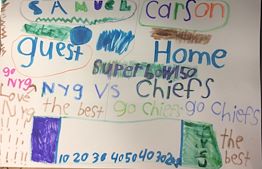 SAMUEL carson
guest Home
superbowl 50
go NYg
NYg VS chiefs
Love the best go chiefs go chiefs
the best
10 20 30 40 50 40 30 20